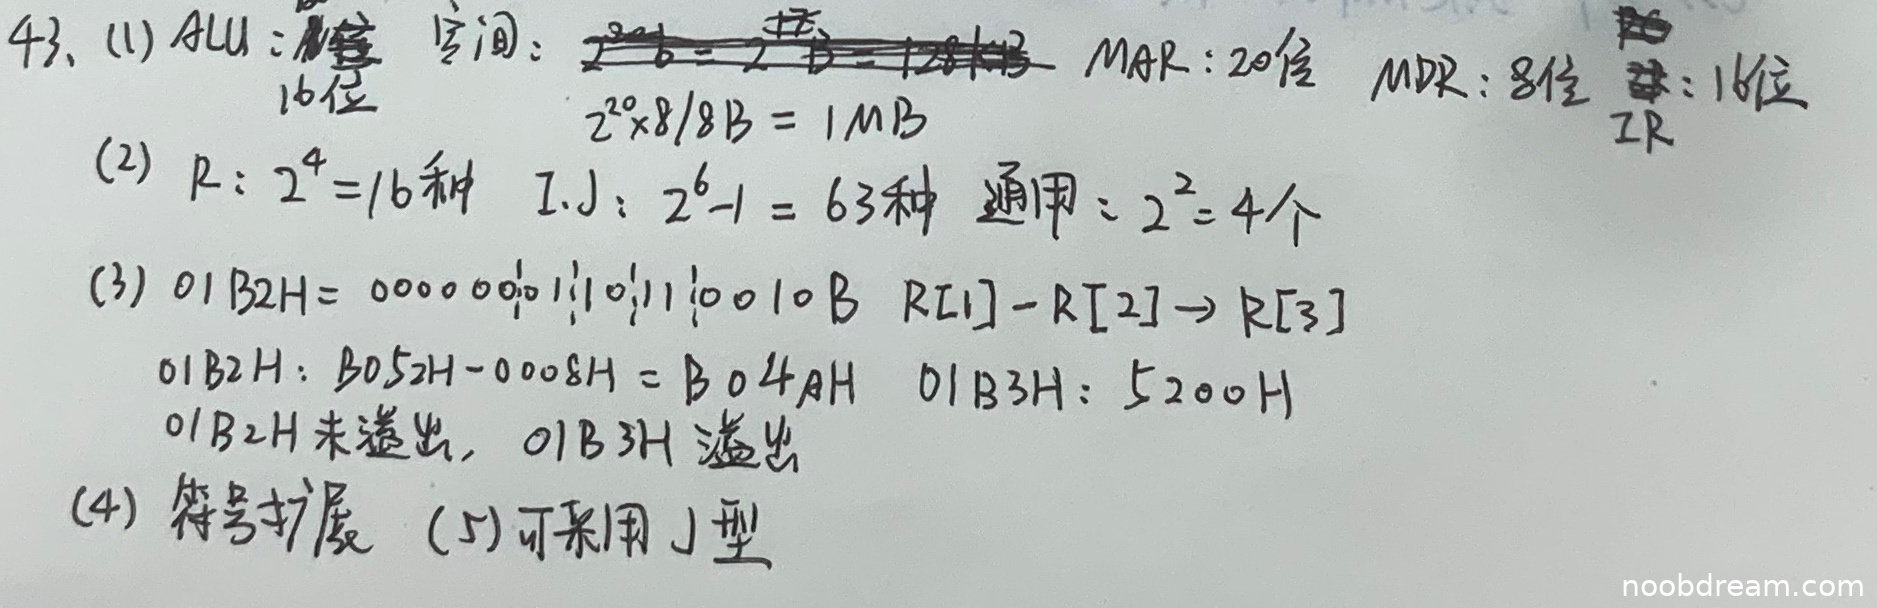 43、(1) ALU: 16位 空间: 2²⁰×8/8B = 1MB MAR: 20位 MDR: 8位 IR: 16位
(2) R: 2⁴=16种 I.J: 2⁶-1 = 63种 通用: 2²=4个
(3) 01B2H = 000000 01 10 11 0010B R[1]-R[2]→R[3]
01B2H: B052H-0008H = B04AH 01B3H: 5200H
01B2H未溢出, 01B3H溢出
(4) 符号扩展 (5) 可采用J型
noobdream.com